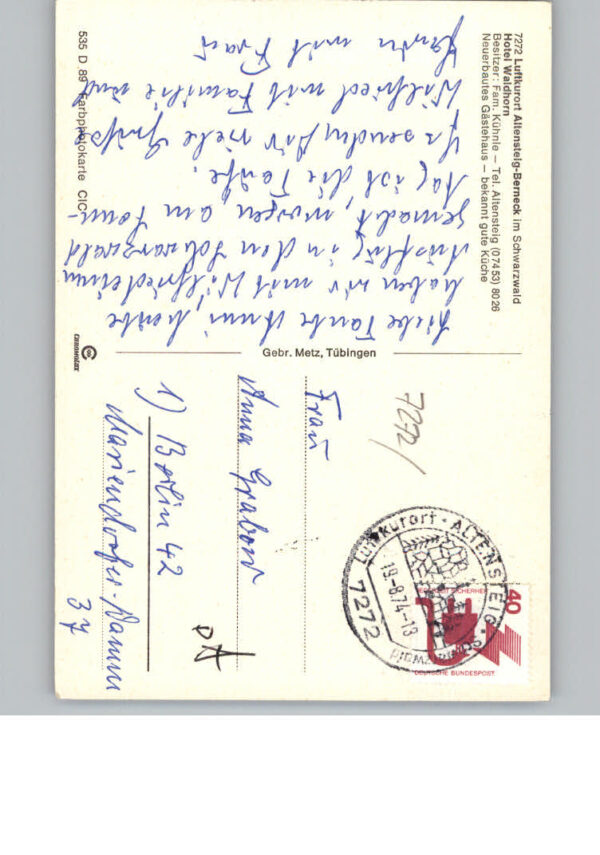 7272 Luftkurort Altensteig-Berneck im Schwarzwald
Hotel Waldhorn
Besitzer: Fam. Kühnle – Tel. Altensteig (07453) 8026
Neuerbautes Gästehaus – bekannt gute Küche
Liebe Tante Anni, heute
haben wir mit Wilfried einen
Ausflug in den Schwarzwald
gemacht, morgen am Sonn-
tag ist die Taufe.
Es senden Dir viele Grüße
Wilfried mit Familie und
mit Frau
535 D 89 Farbphotokarte CIC
CHROMOLUX
Gebr. Metz, Tübingen
7272/
Frau
Anna Grabow
1) Berlin 42
Mariendorfer-Damm
37
Luftkurort · ALTENSTEIG
19.-8.74-13
7272
40
DEUTSCHE BUNDESPOST